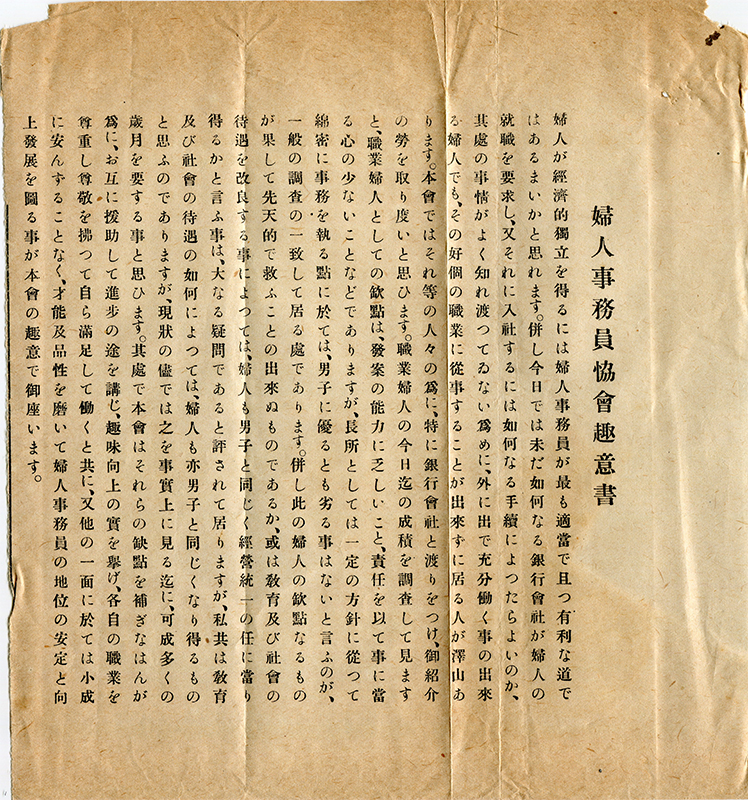 婦人事務員協會趣意書
婦人が經濟的獨立を得るには婦人事務員が最も適當で且つ有利な道で
はあるまいかと思れます。併し今日では未だ如何なる銀行會社が婦人の
就職を要求し、又それに入社するには如何なる手續によつたらよいのか、
其處の事情がよく知れ渡つてゐない爲めに、外に出で充分働く事の出來
る婦人でも、その好個の職業に從事することが出來ずに居る人が澤山あ
ります。本會ではそれ等の人々の爲に、特に銀行會社と渡りをつけ、御紹介
の勞を取り度いと思ひます。職業婦人の今日迄の成積を調査して見ます
と、職業婦人としての欽點は、發案の能力に乏しいこと、責任を以て事に當
る心の少ないことなどでありますが、長所としては一定の方針に從つて
綿密に事務を執る點に於ては、男子に優るとも劣る事はないと言ふのが、
一般の調査の一致して居る處であります。併し此の婦人の欽點なるもの
が果して先天的で救ふことの出來ぬものであるか、或は敎育及び社會の
待遇を改良する事によつては、婦人も男子と同じく經營統一の任に當り
得るかと言ふ事は、大なる疑問であると評されて居りますが、私共は敎育
及び社會の待遇の如何によつては、婦人も亦男子と同じくなり得るもの
と思ふのでありますが、現狀の儘では之を事實上に見る迄に、可成多くの
歲月を要する事と思ひます。其處で本會はそれらの缺點を補ぎなはんが
爲に、お互に援助して進步の途を講じ、趣味向上の實を擧げ、各自の職業を
尊重し尊敬を拂つて自ら滿足して働くと共に、又他の一面に於ては小成
に安んずることなく、才能及品性を磨いて婦人事務員の地位の安定と向
上發展を圖る事が本會の趣意で御座います。